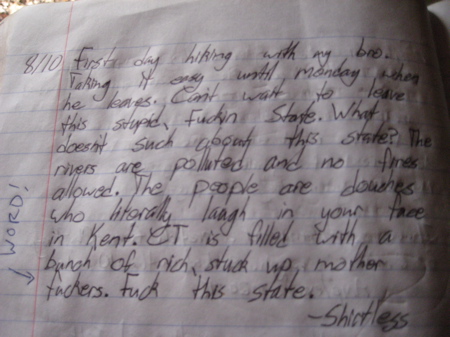 8/10 First day hiking with my bro.
Taking it easy until monday when
he leaves. Can't wait to leave
this stupid, fuckin State. What
doesn't suck about this state? The
rivers are polluted and no fires
allowed. The people are douches
who literally laugh in your face
in Kent. CT is filled with a
bunch of rich, stuck up, mother
fuckers. Fuck this state.
-Shirtless
← WORD!